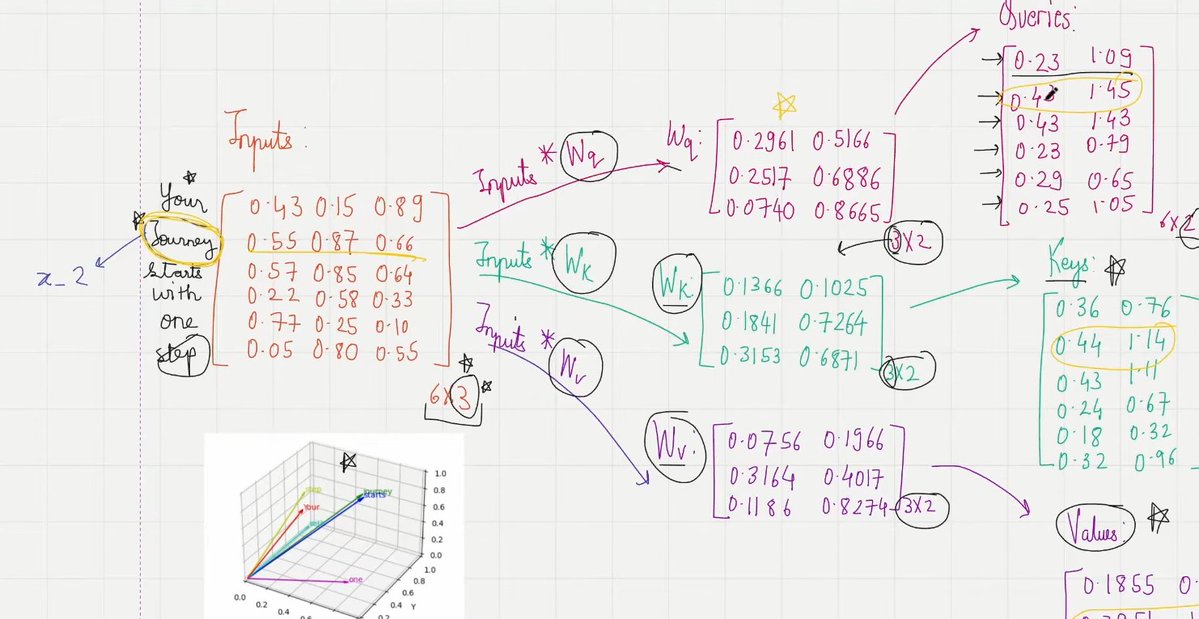 Queries:
0.23 1.09
0.43 1.45
0.43 1.43
0.23 0.79
0.29 0.65
0.25 1.05
Inputs:
Your
Journey
starts
with
one
step
x_2
0.43 0.15 0.89
0.55 0.87 0.66
0.57 0.85 0.64
0.22 0.58 0.33
0.77 0.25 0.10
0.05 0.80 0.55
6x3
Inputs * Wq
Wq:
0.2961 0.5166
0.2517 0.6886
0.0740 0.8665
3x2
Inputs * Wk
Wk:
0.1366 0.1025
0.1841 0.7264
0.3153 0.6871
3x2
Inputs * Wv
Wv:
0.0756 0.1966
0.3164 0.4017
0.1186 0.8274
3x2
6x2
Keys:
0.36 0.76
0.44 1.14
0.43 1.11
0.24 0.67
0.18 0.32
0.32 0.96
Values:
0.1855 0.
step
journey
starts
Your
one
1.0
0.8
0.6
0.4
0.2
0.0
0.0
0.2
0.4
1.0
0.8
0.6
0.4
Y